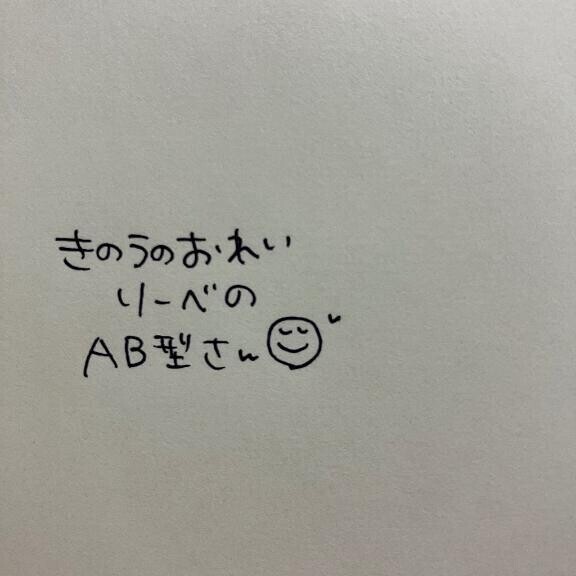 きのうのおれい
リーべの
AB型さん